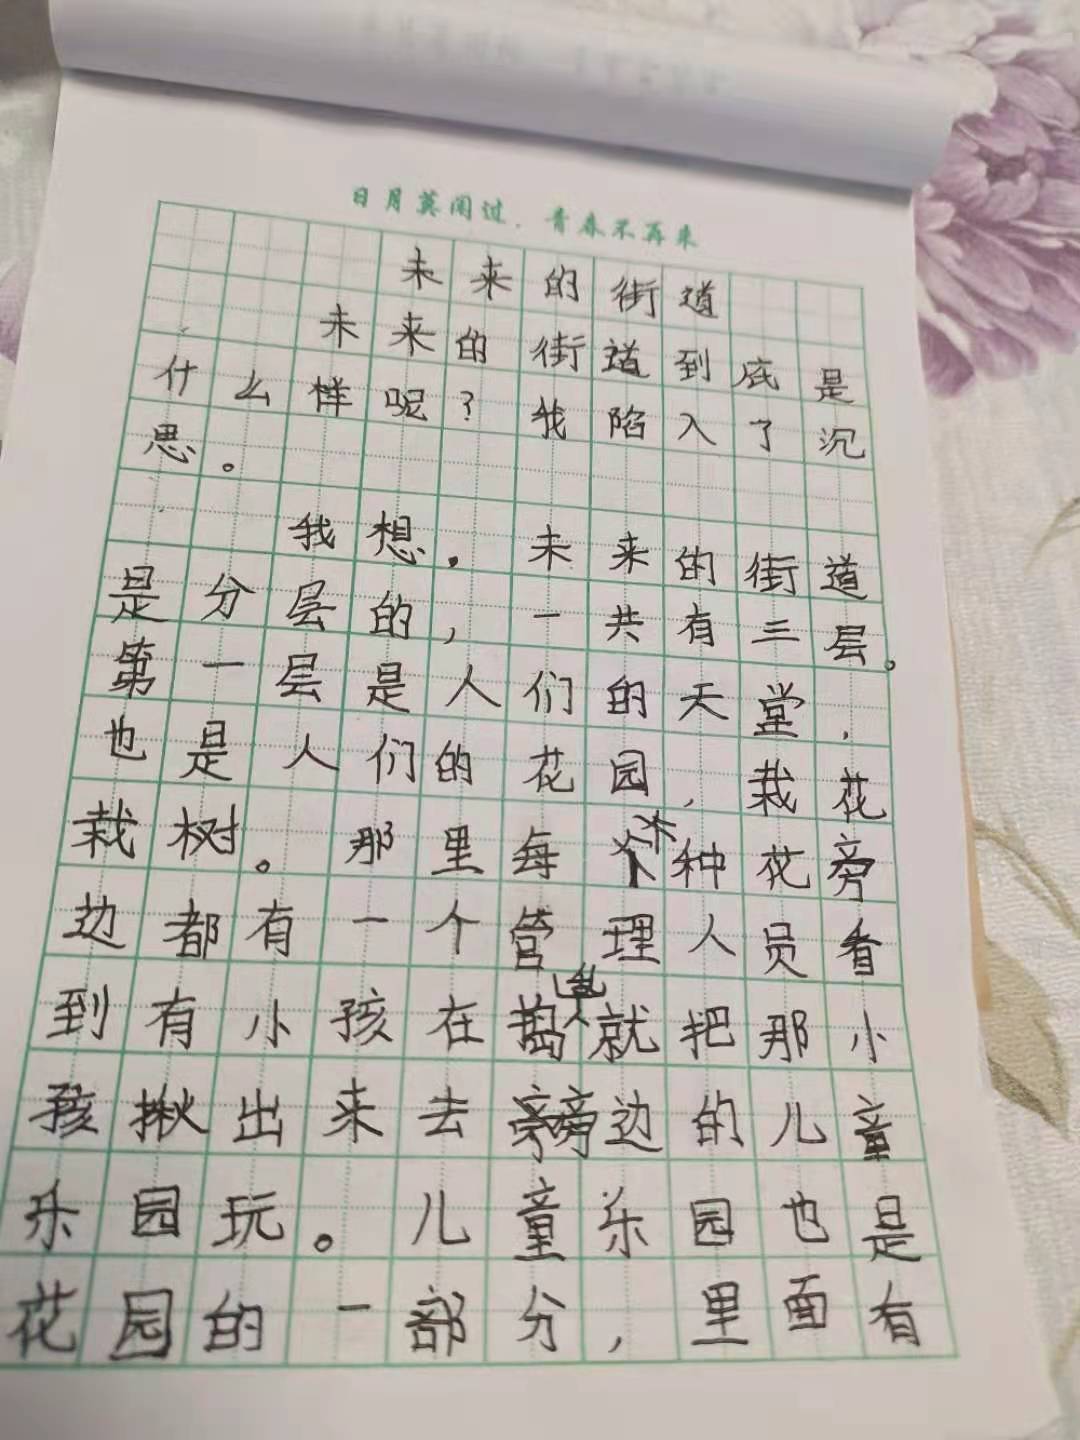 日月莫闲过．青春不再来
未来的街道
未来的街道到底是
什么样呢？我陷入了沉
思。
我想．未来的街道
是分层的，一共有三层。
第一层是人们的天堂，
也是人们的花园，栽花
栽树。那里每种花旁
边都有一个管理人员看
到有小孩在捣乱就把那小
孩揪出来去旁边的儿童
乐园玩。儿童乐园也是
花园的一部分，里面有